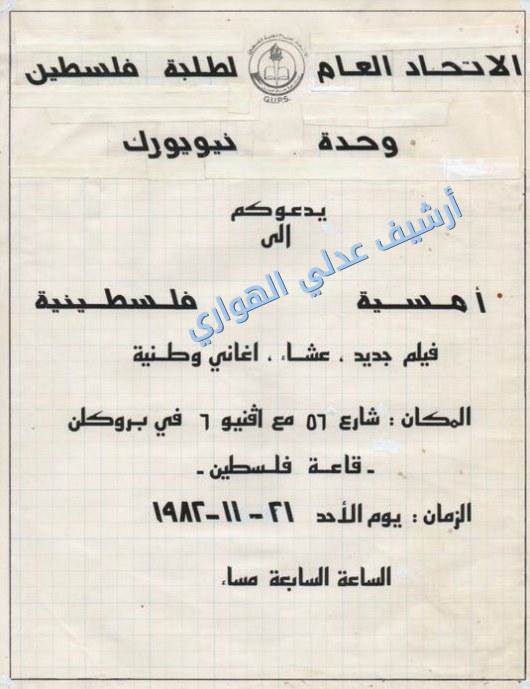 الاتحاد العام لطلبة فلسطين
G.U.P.S.
وحدة نيويورك
يدعوكم
الى
أمسية فلسطينية
فيلم جديد ، عشاء ، اغاني وطنية
المكان : شارع ٥٦ مع اڤنيو ٦ في بروكلن
- قاعة فلسطين -
الزمان : يوم الأحد ٢١-١١-١٩٨٢
الساعة السابعة مساء
أرشيف عدلي الهواري